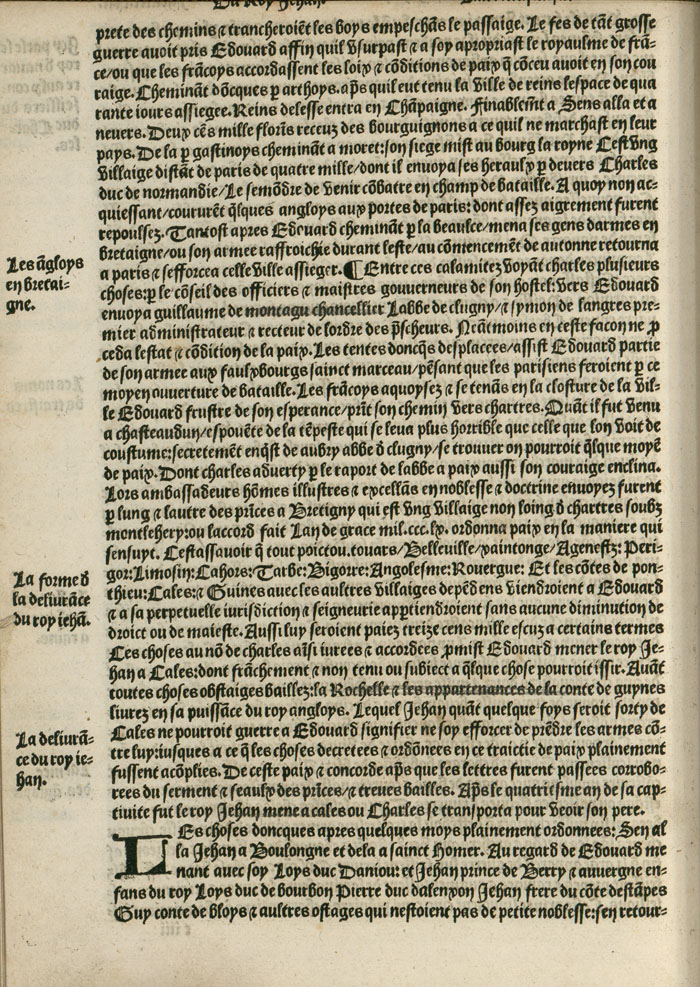 Du roy Jehan.
prete des chemins ⁊ trancheroiẽt les boys empeschãs le passaige. Le fes de tãt grosse
guerre auoit pris Edouard affin quil vsurpast ⁊ a soy apropriast le royaulme de frã-
ce/ou que les frãcoys accordassent les loix ⁊ cõditions de paix q̃ cõceu auoit en son cou
raige. Cheminãt dõcques p̱ arthoys. ap̃s quil eut tenu la ville de reins lespace de qua
rante iours assiegee. Reins delesse entra en Chãpaigne. Finablemẽt a Sens alla et a
neuers. Deux cẽs mille florĩs receuz des bourguignons a ce quil ne marchast en leur
pays. De la p̱ gastinoys cheminãt a moret:son siege mist au bourg la royne Cest vng
villaige distãt de paris de quatre mille/dont il enuoya ses heraulx p̱ deuers Charles
duc de normandie/Le semõdre de venir cõbatre en champ de bataille. A quoy non ac-
quiessant/coururẽt q̃lques angloys aux portes de paris: dont assez aigrement furent
repoulsez. Tantost apres Edouard cheminãt p̱ la beaulce/mena ses gens darmes en
bretaigne/ou son armee raffroichie durant leste/au cõmencemẽt de autonne retourna
a paris ⁊ sefforcea celle ville assieger. ¶ Entre ces calamitez voyãt charles plusieurs
choses:p̱ le cõseil des officiers ⁊ maistres gouuerneurs de son hostel: vers Edouard
enuoya guillaume de montagu chancellier Labbe de clugny/⁊ symon de langres pre-
mier administrateur ⁊ recteur de lordre des p̃scheurs. Neãtmoins en ceste facon ne ꝓ
ceda lestat ⁊ cõdition de la paix. Les tentes doncq̃s desplacees/assist Edouard partie
de son armee aux faulxbourgs sainct marceau/pẽsant que les parisiens feroient p̱ ce
moyen ouuerture de bataille. Les frãcoys aquoysez ⁊ se tenãs en la closture de la vil-
le Edouard frustre de son esperance/prĩt son chemin vers chartres. Quãt il fut venu
a chasteaudun/espouẽte de la tẽpeste qui se leua plus horrible que celle que lon voit de
coustume:secretemẽt enq̃st de aubry abbe d̃ clugny/se trouuer on pourroit q̃lque moyẽ
de paix. Dont charles aduerty p̱ le raport de labbe a paix aussi son couraige enclina.
Lors ambassadeurs hõmes illustres ⁊ excellãs en noblesse ⁊ doctrine enuoyez furent
p̱ lung ⁊ lautre des prĩces a Bretigny qui est vng villaige non loing d̃ chartres soubz
montlehery:ou laccord fait Lan de grace mil.ccc.lx. ordonna paix en la maniere qui
sensuyt. Cestassauoir q̃ tout poictou.touars/Belleuille/xaintonge/Agenestz: Peri-
gor:Limosin:Cahors:Tarbe:Bigorre:Angolesme:Rouergue: Et les cõtes de pon-
thieu:Cales:⁊ Guines auec les aultres villaiges depẽdens viendroient a Edouard
⁊ a sa perpetuelle iurisdiction ⁊ seigneurie app̱tiendroient sans aucune diminution de
droict ou de maieste. Aussi luy seroient paiez treize cens mille escuz a certains termes
Ces choses au nõ de charles aĩsi iurees ⁊ accordees ꝓmist Edouard mener le roy Je-
han a Cales:dont frãchement ⁊ non tenu ou subiect a q̃lque chose pourroit issir. Auãt
toutes choses obstaiges baillez:la Rochelle ⁊ les appartenances de la conte de guynes
liurez en sa puissãce du roy angloys. Lequel Jehan quãt quelque foys seroit sorty de
Cales ne pourroit guerre a Edouard signifier ne soy efforcer de prẽdre les armes cõ-
tre luy:iusques a ce q̃ les choses decretees ⁊ ordõnees en ce traictie de paix plainement
fussent acõplies. De ceste paix ⁊ concorde ap̃s que les lettres furent passees corrobo-
rees du serment ⁊ seaulx des prĩces/⁊ treues bailles. Ap̃s le quatriesme an de sa cap-
tiuite fut le roy Jehan mene a cales ou Charles se transporta pour veoir son pere.
LEs choses doncques apres quelques moys plainement ordonnees: Sen al
la Jehan a Boulongne et dela a sainct Homer. Au regard de Edouard me
nant auec soy Loys duc Daniou: et Jehan prince de Berry ⁊ auuergne en-
fans du roy Loys duc de bourbon Pierre duc dalenxon Jehan frere du cõte destãpes
Guy conte de bloys ⁊ aultres ostages qui nestoient pas de petite noblesse:sen retour-
Les ãgloys
en bretai-
gne.
La forme d̃
la deliurãce
du roy iehã.
La deliurã-
ce du roy ie-
han.